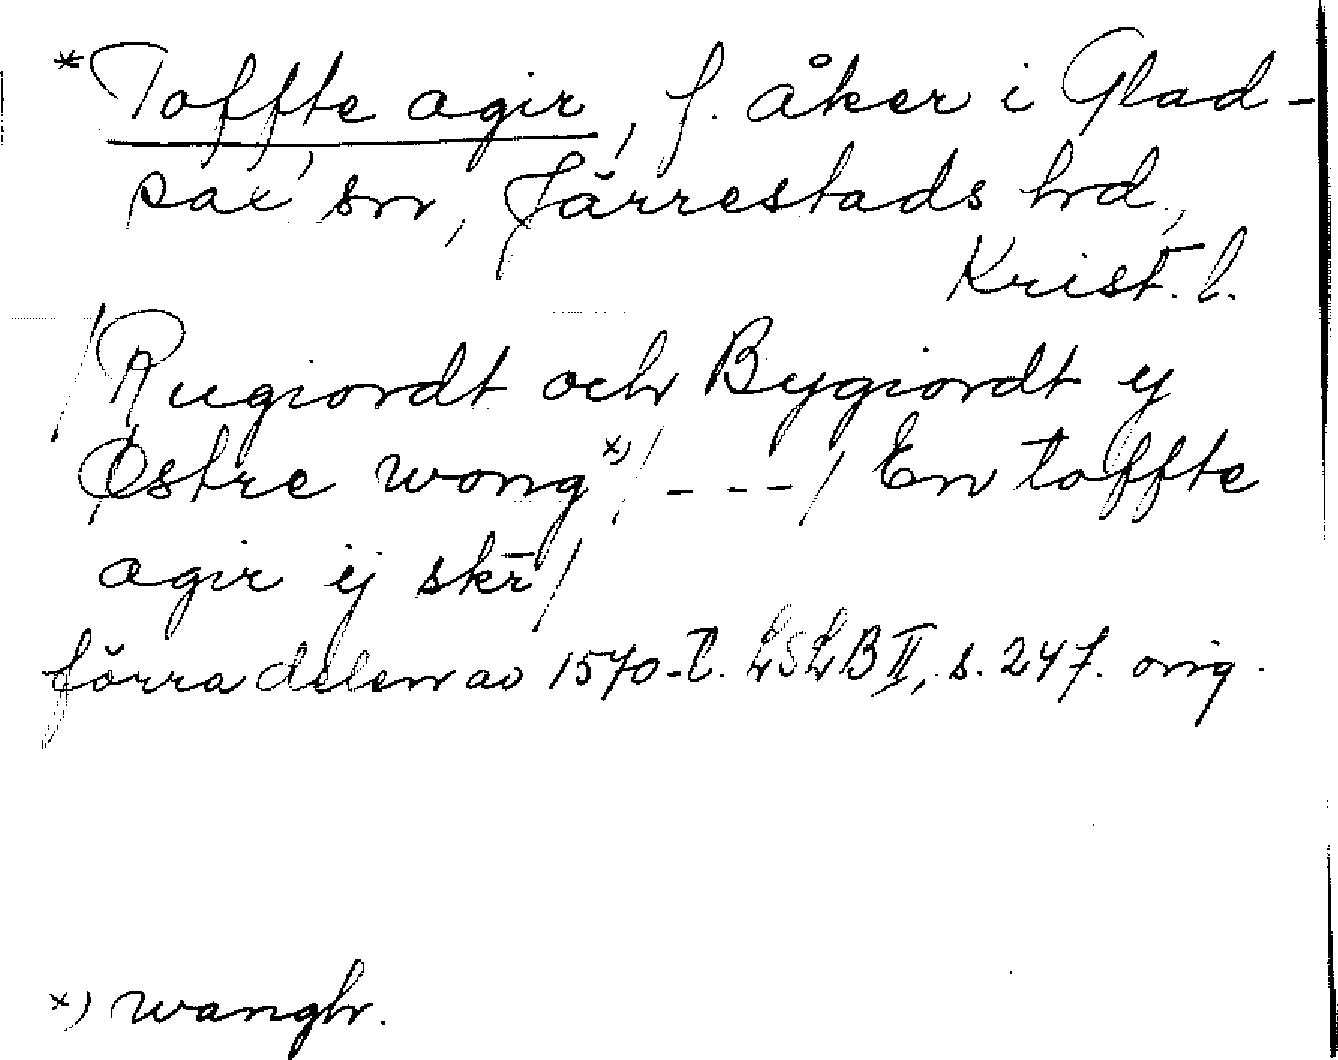 *Toffte agir, f. åker i Glad-
sax sn, Järrestads hd,
Krist. l.
/Rugiordt och Bygiordt ij
Østre wong x)/ - - - / En toffte
agir ij skr̄/
förra delen av 1570-t. LSLB II, s. 247. orig.
x) wangh.